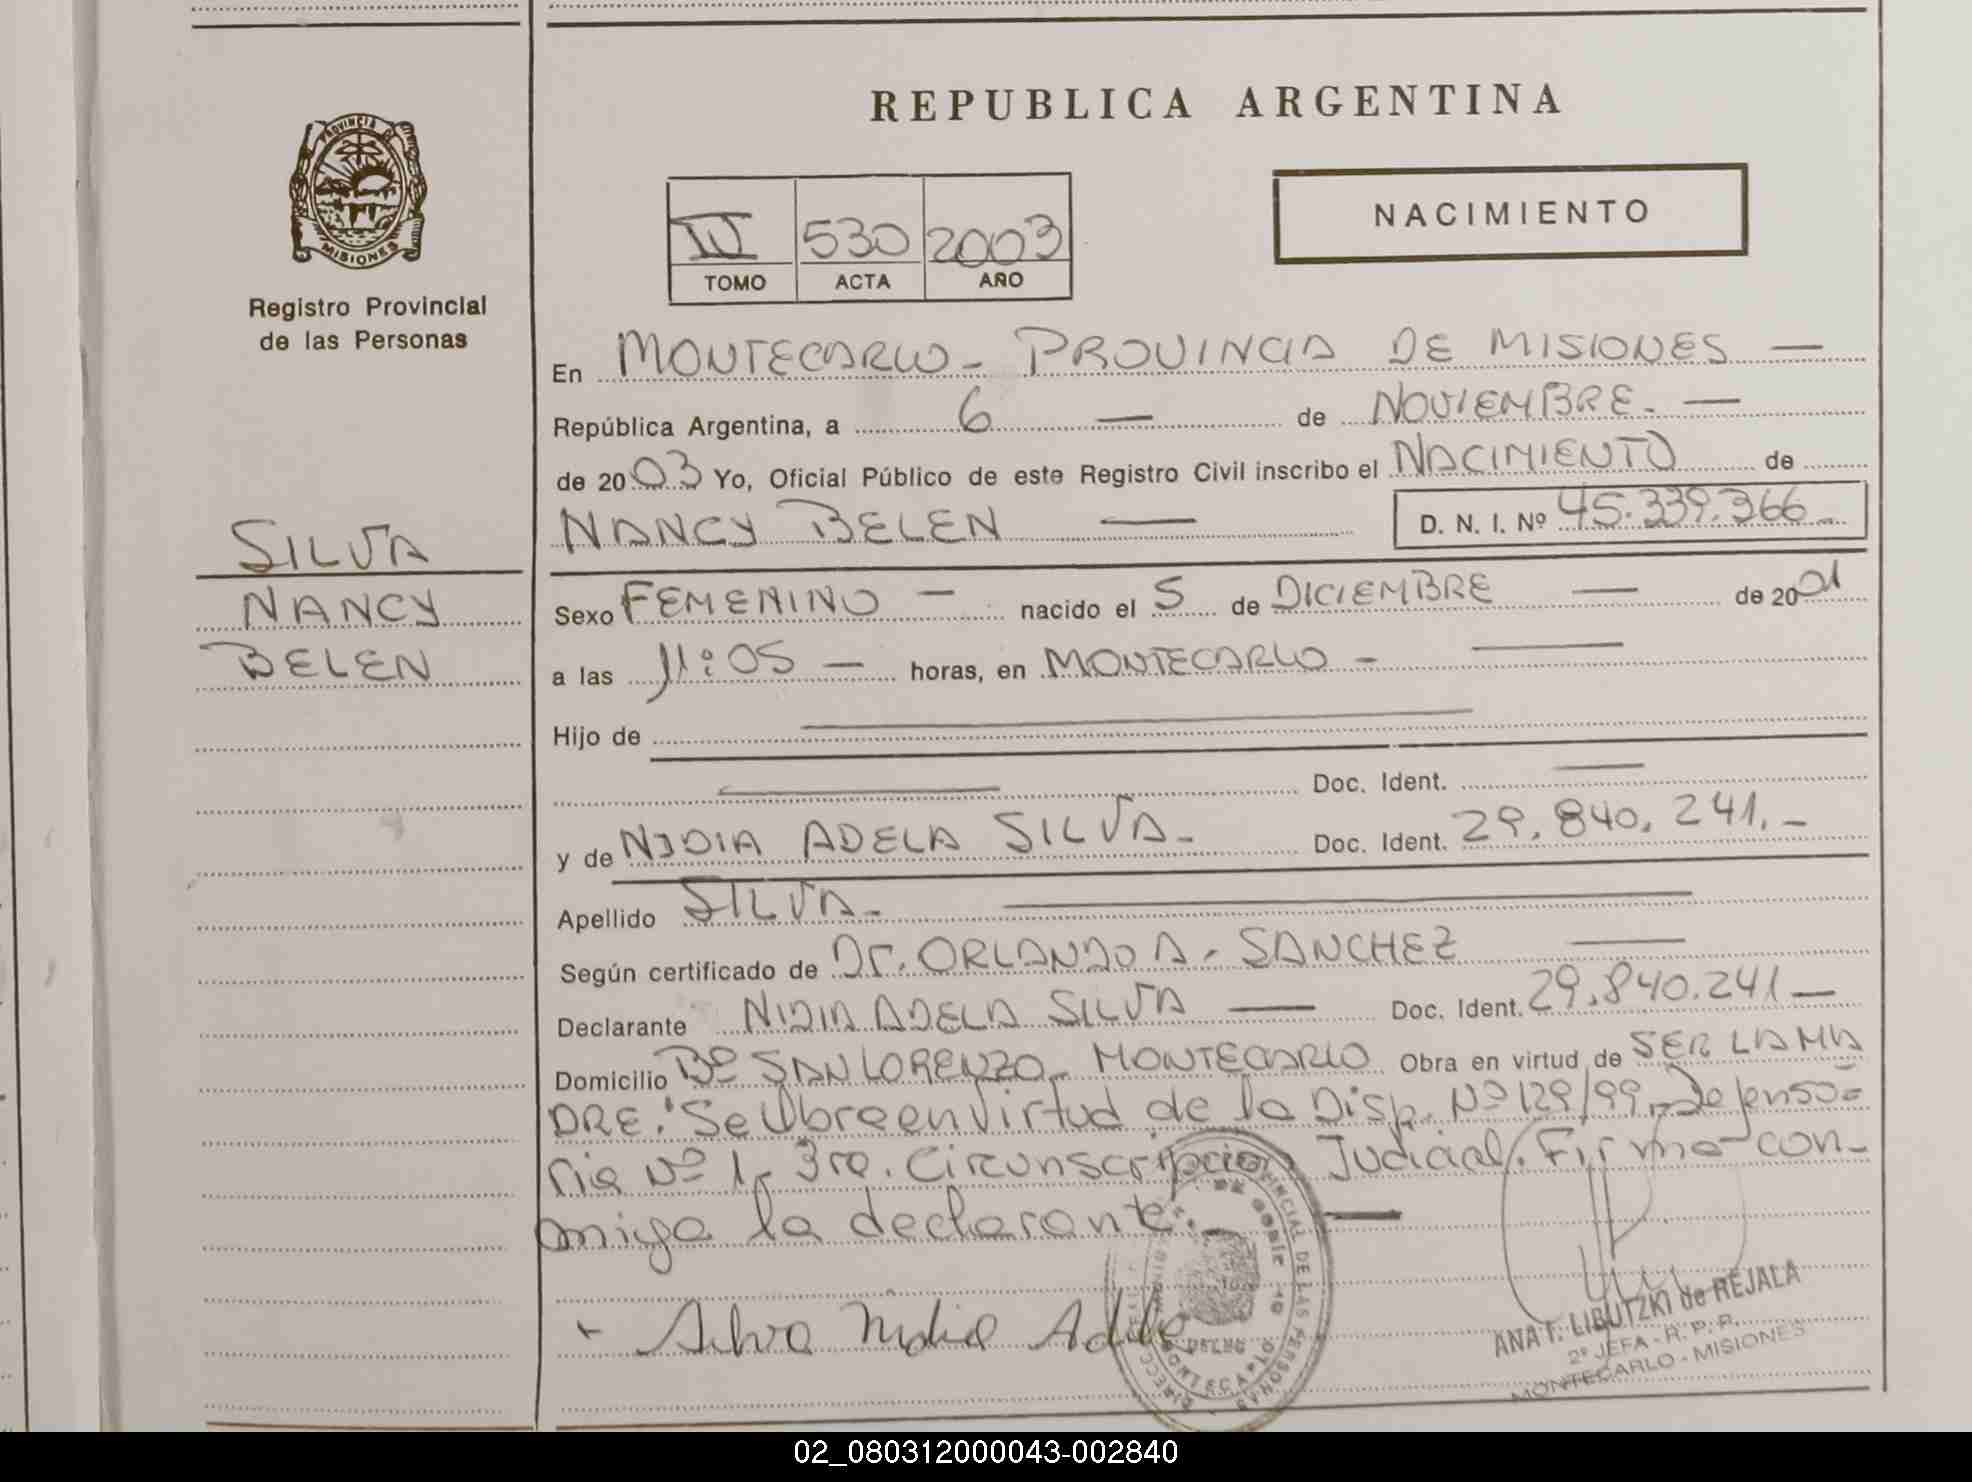 REPUBLICA ARGENTINA
PROVINCIA DE
MISIONES
Registro Provincial
de las Personas
IV 530 2003
TOMO ACTA AÑO
NACIMIENTO
En MONTECARLO - PROVINCIA DE MISIONES —
República Argentina, a 6 — de NOVIEMBRE. —
de 2003 Yo, Oficial Público de este Registro Civil inscribo el NACIMIENTO de
NANCY BELEN — D. N. I. Nº 45.339.366
SILVA
NANCY
BELEN
Sexo FEMENINO — nacido el 5 de DICIEMBRE — de 2001
a las 11:05 — horas, en MONTECARLO - —
Hijo de —
— Doc. Ident. —
y de NIDIA ADELA SILVA. Doc. Ident. 29.840.241.-
Apellido SILVA. —
Según certificado de Dr. ORLANDO A. SANCHEZ —
Declarante NIDIA ADELA SILVA — Doc. Ident. 29.840.241 —
Domicilio Bº SAN LORENZO - MONTECARLO Obra en virtud de SER LA MA
DRE. Se Obra en virtud de la Disp. Nº 129/99, Defenso=
ria Nº 1, 3ra. Circunscripcion Judicial. Firma con-
migo la declarante. —
Silva Nidia Adela
ANA T. LIBUTZKI de REJALA
2º JEFA - R. P. P.
MONTECARLO - MISIONES
02_080312000043-002840